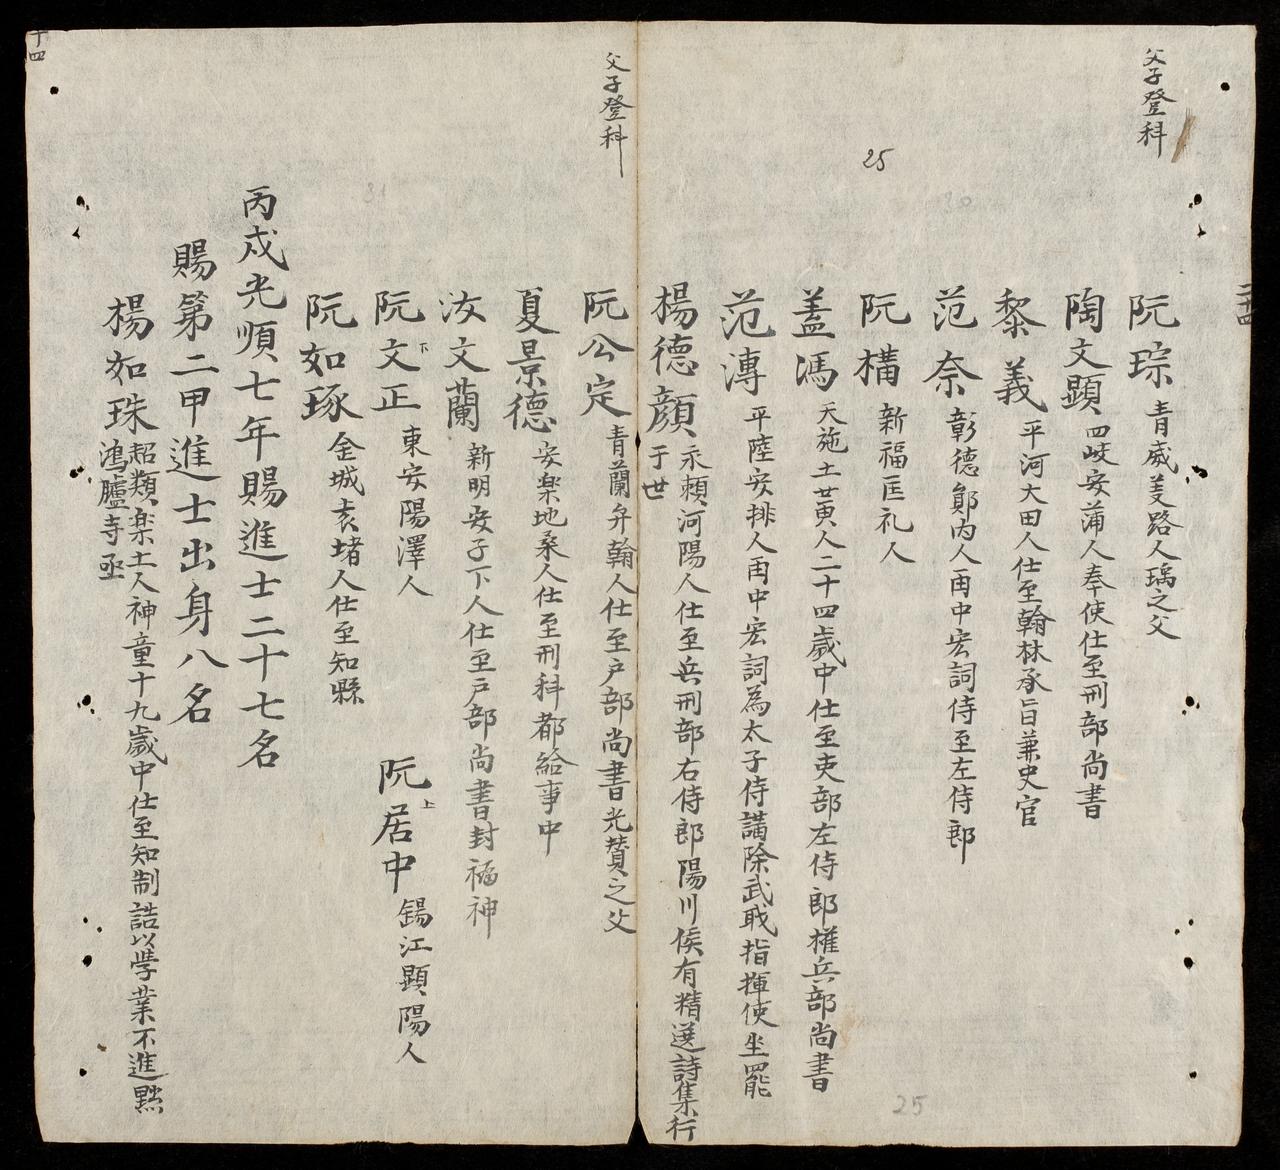 父子登科
二十四
阮琮 青威芰路人瑀之父
陶文顕 四岐安蒲人奉使仕至刑部尚書
黎義 平河大田人仕至翰林承旨兼史官
范奈 彰德鄭内人再中宏詞侍至左侍郎
阮構 新福匡礼人
25
蓋馮 天施土黄人二十四歲中仕至吏部左侍郎權兵部尚書
范漙 平陸安排人再中宏詞為太子侍講除武職指揮使坐罷
楊德顔 永頼河陽人仕至兵刑部右侍郎陽川侯有精選詩集行
于世
25
父子登科
阮公定 青蘭弁翰人仕至户部尚書光賛之父
夏景德 安楽地桑人仕至刑科都給事中
汝文蘭 新明安子下人仕至户部尚書封福神
阮文正 下 東安陽澤人
阮居中 上 錫江顕陽人
阮如琢 金城袁堵人仕至知縣
丙戍光順七年賜進士二十七名
賜第二甲進士出身八名
楊如珠 超類楽土人神童十九歲中仕至知制誥以學業不進黜
鴻臚寺丞
十四